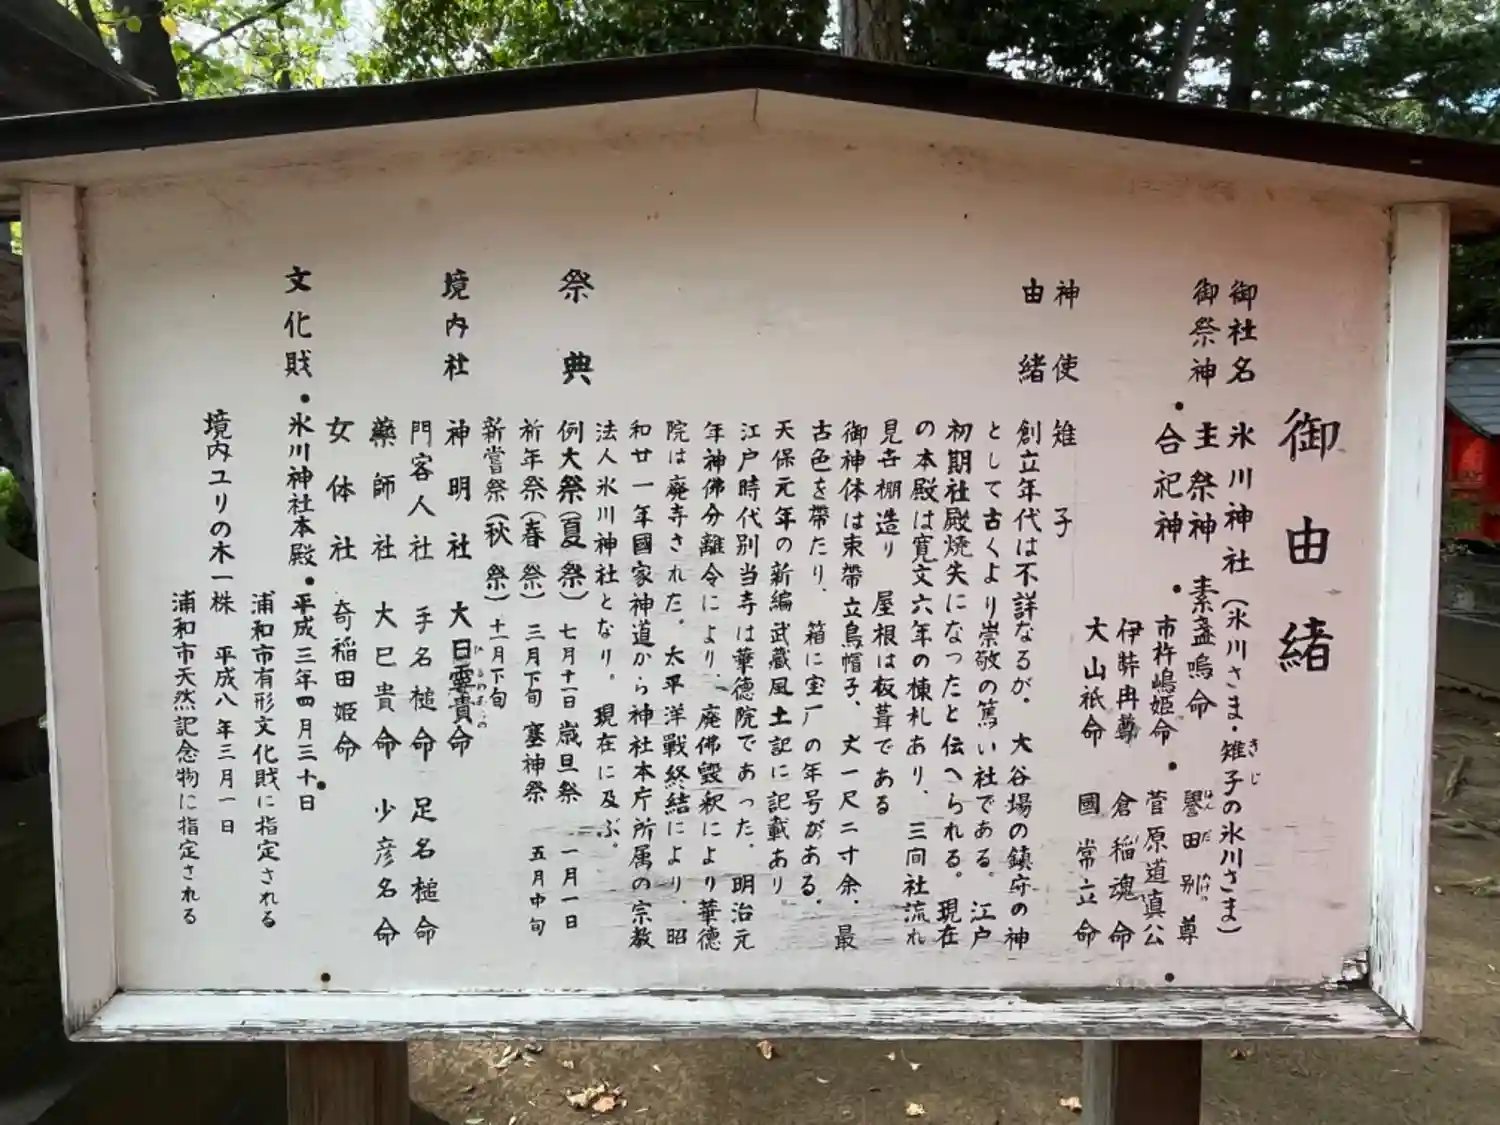 御由緒
御社名 氷川神社（氷川さま・雉子の氷川さま）
きじ
御祭神 主祭神 素盞嗚命 譽田別尊
ほんだわけの
合祀神 市杵嶋姫命 菅原道真公
伊弉冉尊 倉稲魂命
大山祇命 國常立命
神使 雉子
由緒 創立年代は不詳なるが、大谷場の鎮守の神
として古くより崇敬の篤い社である。江戸
初期社殿焼失になったと伝へられる。現在
の本殿は寛文六年の棟札あり、三間社流れ
見世棚造り 屋根は板葺である
御神体は束帯立烏帽子、丈一尺二寸余、最
古色を帶たり、箱に宝厂の年号がある。
天保元年の新編武蔵風土記に記載あり。
江戸時代別当寺は華徳院であった。明治元
年神佛分離令により、廃佛毀釈により華徳
院は廃寺された。太平洋戰終結により、昭
和廿一年國家神道から神社本庁所属の宗教
法人氷川神社となり。現在に及ぶ。
祭典 例大祭（夏祭）七月十一日 歳旦祭 一月一日
祈年祭（春祭）三月下旬 塞神祭 五月中旬
新嘗祭（秋祭）十一月下旬
境内社 神明社 大日孁貴命
ひるめむちの
門客人社 手名槌命 足名槌命
藥師社 大巳貴命 少彦名命
女体社 奇稲田姫命
文化財・氷川神社本殿・平成三年四月三十日
浦和市有形文化財に指定される
境内ユリの木一株 平成八年三月一日
浦和市天然記念物に指定される